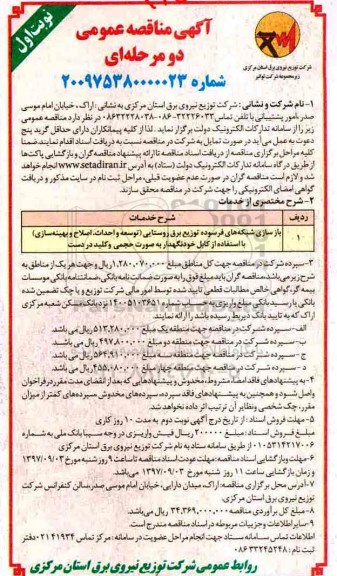 نوبت اول
آگهی مناقصه عمومی
دو مرحله‌ای
شماره ۲۰۰۹۷۵۳۸۰۰۰۰۰۲۳
شرکت توزیع نیروی برق استان مرکزی
زیر مجموعه شرکت توانیر
۱- نام شرکت و نشانی : شرکت توزیع نیروی برق استان مرکزی به نشانی : اراک ، خیابان امام موسی
صدر ، امور پشتیبانی با تلفن تماس ۳۲۲۲۶۰۳۳-۰۸۶ ۰۸۶۳۲۲۲۸۰۳۸-۰۸۶ در نظر دارد مناقصه عمومی
زیر را از سامانه تدارکات الکترونیک دولت برگزار نماید . لذا از کلیه پیمانکاران دارای حداقل گرید پنج
دعوت به عمل می‌آید در صورت تمایل به شرکت در مناقصه نسبت به دریافت اسناد اقدام نمایند. ضمنا
کلیه مراحل برگزاری مناقصه از دریافت اسناد مناقصه تا ارائه پیشنهاد مناقصه گران و بازگشایی پاکت‌ها
از طریق درگاه سامانه تدارکات الکترونیک دولت (ستاد) به آدرس www.setadiran.ir انجام خواهد
شد و لازم است مناقصه گران در صورت عدم عضویت قبلی، مراحل ثبت نام در سایت مذکور و دریافت
گواهی امضای الکترونیکی را جهت شرکت در مناقصه محقق سازند.
۲- شرح مختصری از خدمات
ردیف شرح خدمات
۱ باز سازی شبکه‌های فرسوده توزیع برق روستایی (توسعه و احداث، اصلاح و بهینه سازی)
با استفاده از کابل خودنگهدار به صورت حجمی و کلید در دست
۳- سپرده شرکت در مناقصه جهت کل مناطق مبلغ ۱,۲۸۰,۰۷۰,۰۰۰ ریال و جهت هر یک از مناطق به
شرح زیر می‌باشد، مناقصه گران باید مبلغ فوق را به صورت ضمانت نامه بانکی، ضمانتنامه بانکی موسسات
بیمه گر، گواهی خالص مطالبات قطعی تایید شده توسط امور مالی شرکت توزیع و یا چک تضمین شده
بانکی یا رسید بانکی مبلغ واریزی به حساب شماره ۱۴۰۰۵۱۰۳۶۵۱ نزد بانک مسکن شعبه مرکزی
اراک که به تایید بانک ذیربط رسیده باشد را ارائه نمایند.
الف- سپرده شرکت در مناقصه جهت منطقه یک مبلغ ۵۱۳,۲۸۰,۰۰۰ ریال می باشد.
ب- سپرده شرکت در مناقصه جهت منطقه دو مبلغ ۴۹۷,۸۰۰,۰۰۰ ریال می باشد.
ج- سپرده شرکت در مناقصه جهت منطقه سه مبلغ ۵۶۴,۹۱۰,۰۰۰ ریال می باشد.
د- سپرده شرکت در مناقصه جهت منطقه چهار مبلغ ۴۵۵,۰۸۰,۰۰۰ ریال می باشد.
۴- به پیشنهادهای فاقد امضا، مشروط، مخدوش و پیشنهادهایی که بعد از انقضای مدت مقرر در فراخوان
واصل شود و همچنین به پیشنهادهای فاقد سپرده، سپرده‌های مخدوش، سپرده‌های کمتر از میزان
مقرر، چک شخصی و نظایر آن ترتیب اثر داده نخواهد شد.
۵- مهلت فروش اسناد : از تاریخ درج آگهی نوبت دوم به مدت ۱۰ روز کاری
مبلغ فروش اسناد : مبلغ ۲۰۰۰۰۰ ریال فیش واریزی در وجه سیبا بانک ملی به شماره
۰۱۰۵۳۱۴۲۱۷۰۰۶ از طریق سامانه ستاد به نام شرکت توزیع نیروی برق استان مرکزی
۶- مهلت و بازگشایی اسناد مناقصه: مهلت عودت اسناد مناقصه تا ساعت ۹ روز شنبه مورخ ۱۳۹۷/۰۹/۰۳
و زمان بازگشایی ساعت ۱۱ روز شنبه مورخ ۱۳۹۷/۰۹/۰۳ می‌باشد.
۷- آدرس محل برگزاری مناقصه: اراک، میدان دارایی، خیابان امام موسی صدر، سالن کنفرانس شرکت
توزیع نیروی برق استان مرکزی.
۸- مبلغ کل برآوردی مناقصه ۳۴,۳۶۹,۰۰۰,۰۰۰ ریال می‌باشد.
۹- سایر اطلاعات و جزییات مربوطه در اسناد مناقصه مندرج است.
اطلاعات تماس سامانه ستاد جهت انجام مراحل عضویت در سامانه : مرکز تماس ۰۲۱۴۱۹۳۴ دفتر
ثبت نام : ۳۳۲۴۵۲۴۸ ۰۸۶
روابط عمومی شرکت توزیع نیروی برق استان مرکزی